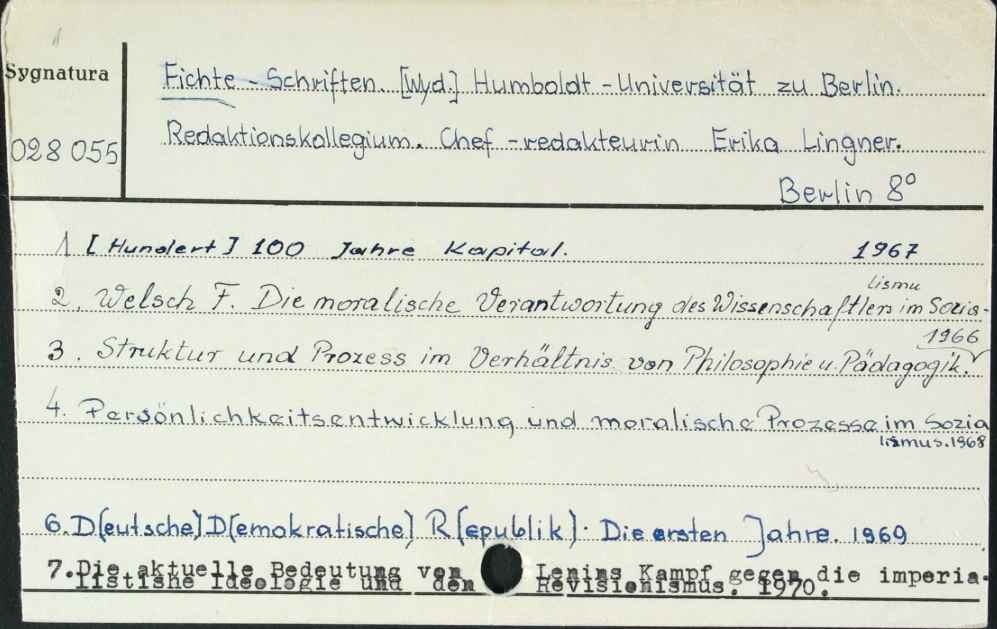 Sygnatura
Fichte - Schriften. [Wyd.] Humboldt - Universität zu Berlin.
028 055
Redaktionskollegium. Chef - redakteurin Erika Lingner.
Berlin 8°
1 [Hundert] 100 Jahre Kapital. 1967
lismu
2. Welsch F. Die moralische Verantwortung des Wissenschaftlers im Sozia-
1966
3. Struktur und Prozess im Verhältnis von Philosophie u. Pädagogik.
4. Persönlichkeitsentwicklung und moralische Prozesse im Sozia
lismus. 1968
6. D[eutsche] D[emokratische] R[epublik]. Die ersten Jahre. 1969
7. Die aktuelle Bedeutung von Lenins Kampf gegen die imperia-
listishe Ideologie und den Revisionismus. 1970.